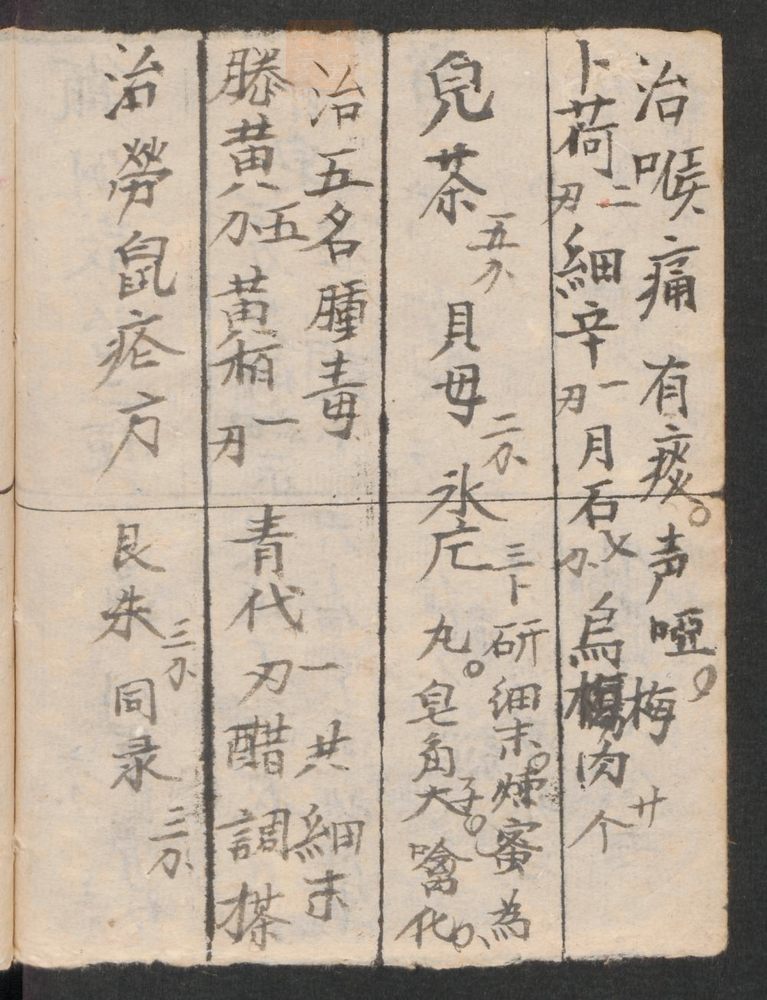 治喉痛有痰。声哑。
卜荷二刃細辛一刃月石乂分烏梅肉廿个
兒茶五分貝母二分氷庀三卜研細末。煉蜜為
丸。皂角子大。噙化
治五名腫毒
滕黄五分黄栢一刃青代一刃共細末
醋調搽
治勞鼠疮方
艮朱三分同录三分